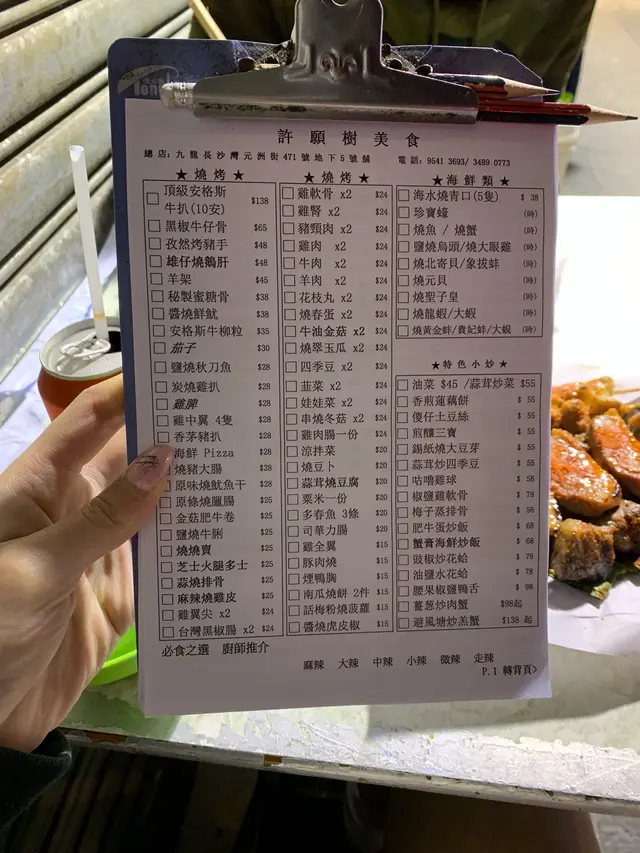 許願樹美食
總店：九龍長沙灣元洲街471號地下5號舖 電話：9541 3693/ 3489 0773
★ 燒烤 ★
頂級安格斯
牛扒(10安) $138
黑椒牛仔骨 $65
孜然烤豬手 $48
雄仔燒鵝肝 $48
羊架 $45
秘製蜜糖骨 $38
醬燒鮮魷 $38
安格斯牛柳粒 $35
茄子 $30
鹽燒秋刀魚 $28
炭燒雞扒 $28
雞脾 $28
雞中翼 4隻 $28
香茅豬扒 $28
海鮮 Pizza $28
燒豬大腸 $28
原味燒魷魚干 $28
原條燒臘腸 $25
金菇肥牛卷 $25
鹽燒牛脷 $25
燒燒賣 $25
芝士火腿多士 $25
蒜燒排骨 $25
麻辣燒雞皮 $25
雞翼尖 x2 $24
台灣黑椒腸 x2 $24
★ 燒烤 ★
雞軟骨 x2 $24
雞腎 x2 $24
豬頸肉 x2 $24
雞肉 x2 $24
牛肉 x2 $24
羊肉 x2 $24
花枝丸 x2 $24
燒春蛋 x2 $24
牛油金菇 x2 $24
燒翠玉瓜 x2 $24
四季豆 x2 $24
韭菜 x2 $24
娃娃菜 x2 $24
串燒冬菇 x2 $24
雞肉腸一份 $24
涼拌菜 $20
燒豆卜 $20
蒜茸燒豆腐 $20
粟米一份 $20
多春魚 3條 $20
司華力腸 $20
雞全翼 $15
豚肉燒 $15
煙鴨胸 $15
南瓜燒餅 2件 $15
話梅粉燒菠蘿 $15
醬燒虎皮椒 $15
★ 海鮮類 ★
海水燒青口(5隻) $ 38
珍寶蠔 (時)
燒魚 / 燒蟹 (時)
鹽燒烏頭/燒大眼雞 (時)
燒北寄貝/象拔蚌 (時)
燒元貝 (時)
燒聖子皇 (時)
燒龍蝦/大蝦 (時)
燒黃金蚌/貴妃蚌/大蜆 (時)
★ 特色小炒 ★
油菜 $45 /蒜茸炒菜 $55
香煎蓮藕餅 $ 55
儍仔土豆絲 $ 55
煎釀三寶 $ 55
錫紙燒大豆芽 $ 55
蒜茸炒四季豆 $ 55
咕嚕雞球 $ 58
椒鹽雞軟骨 $ 78
梅子蒸排骨 $ 58
肥牛蛋炒飯 $ 68
蟹膏海鮮炒飯 $ 68
豉椒炒花蛤 $ 78
油鹽水花蛤 $ 78
腰果椒鹽鴨舌 $ 98
薑葱炒肉蟹 $98起
避風塘炒羔蟹 $138 起
必食之選 廚師推介
麻辣 大辣 中辣 小辣 微辣 走辣
P.1 轉背頁>